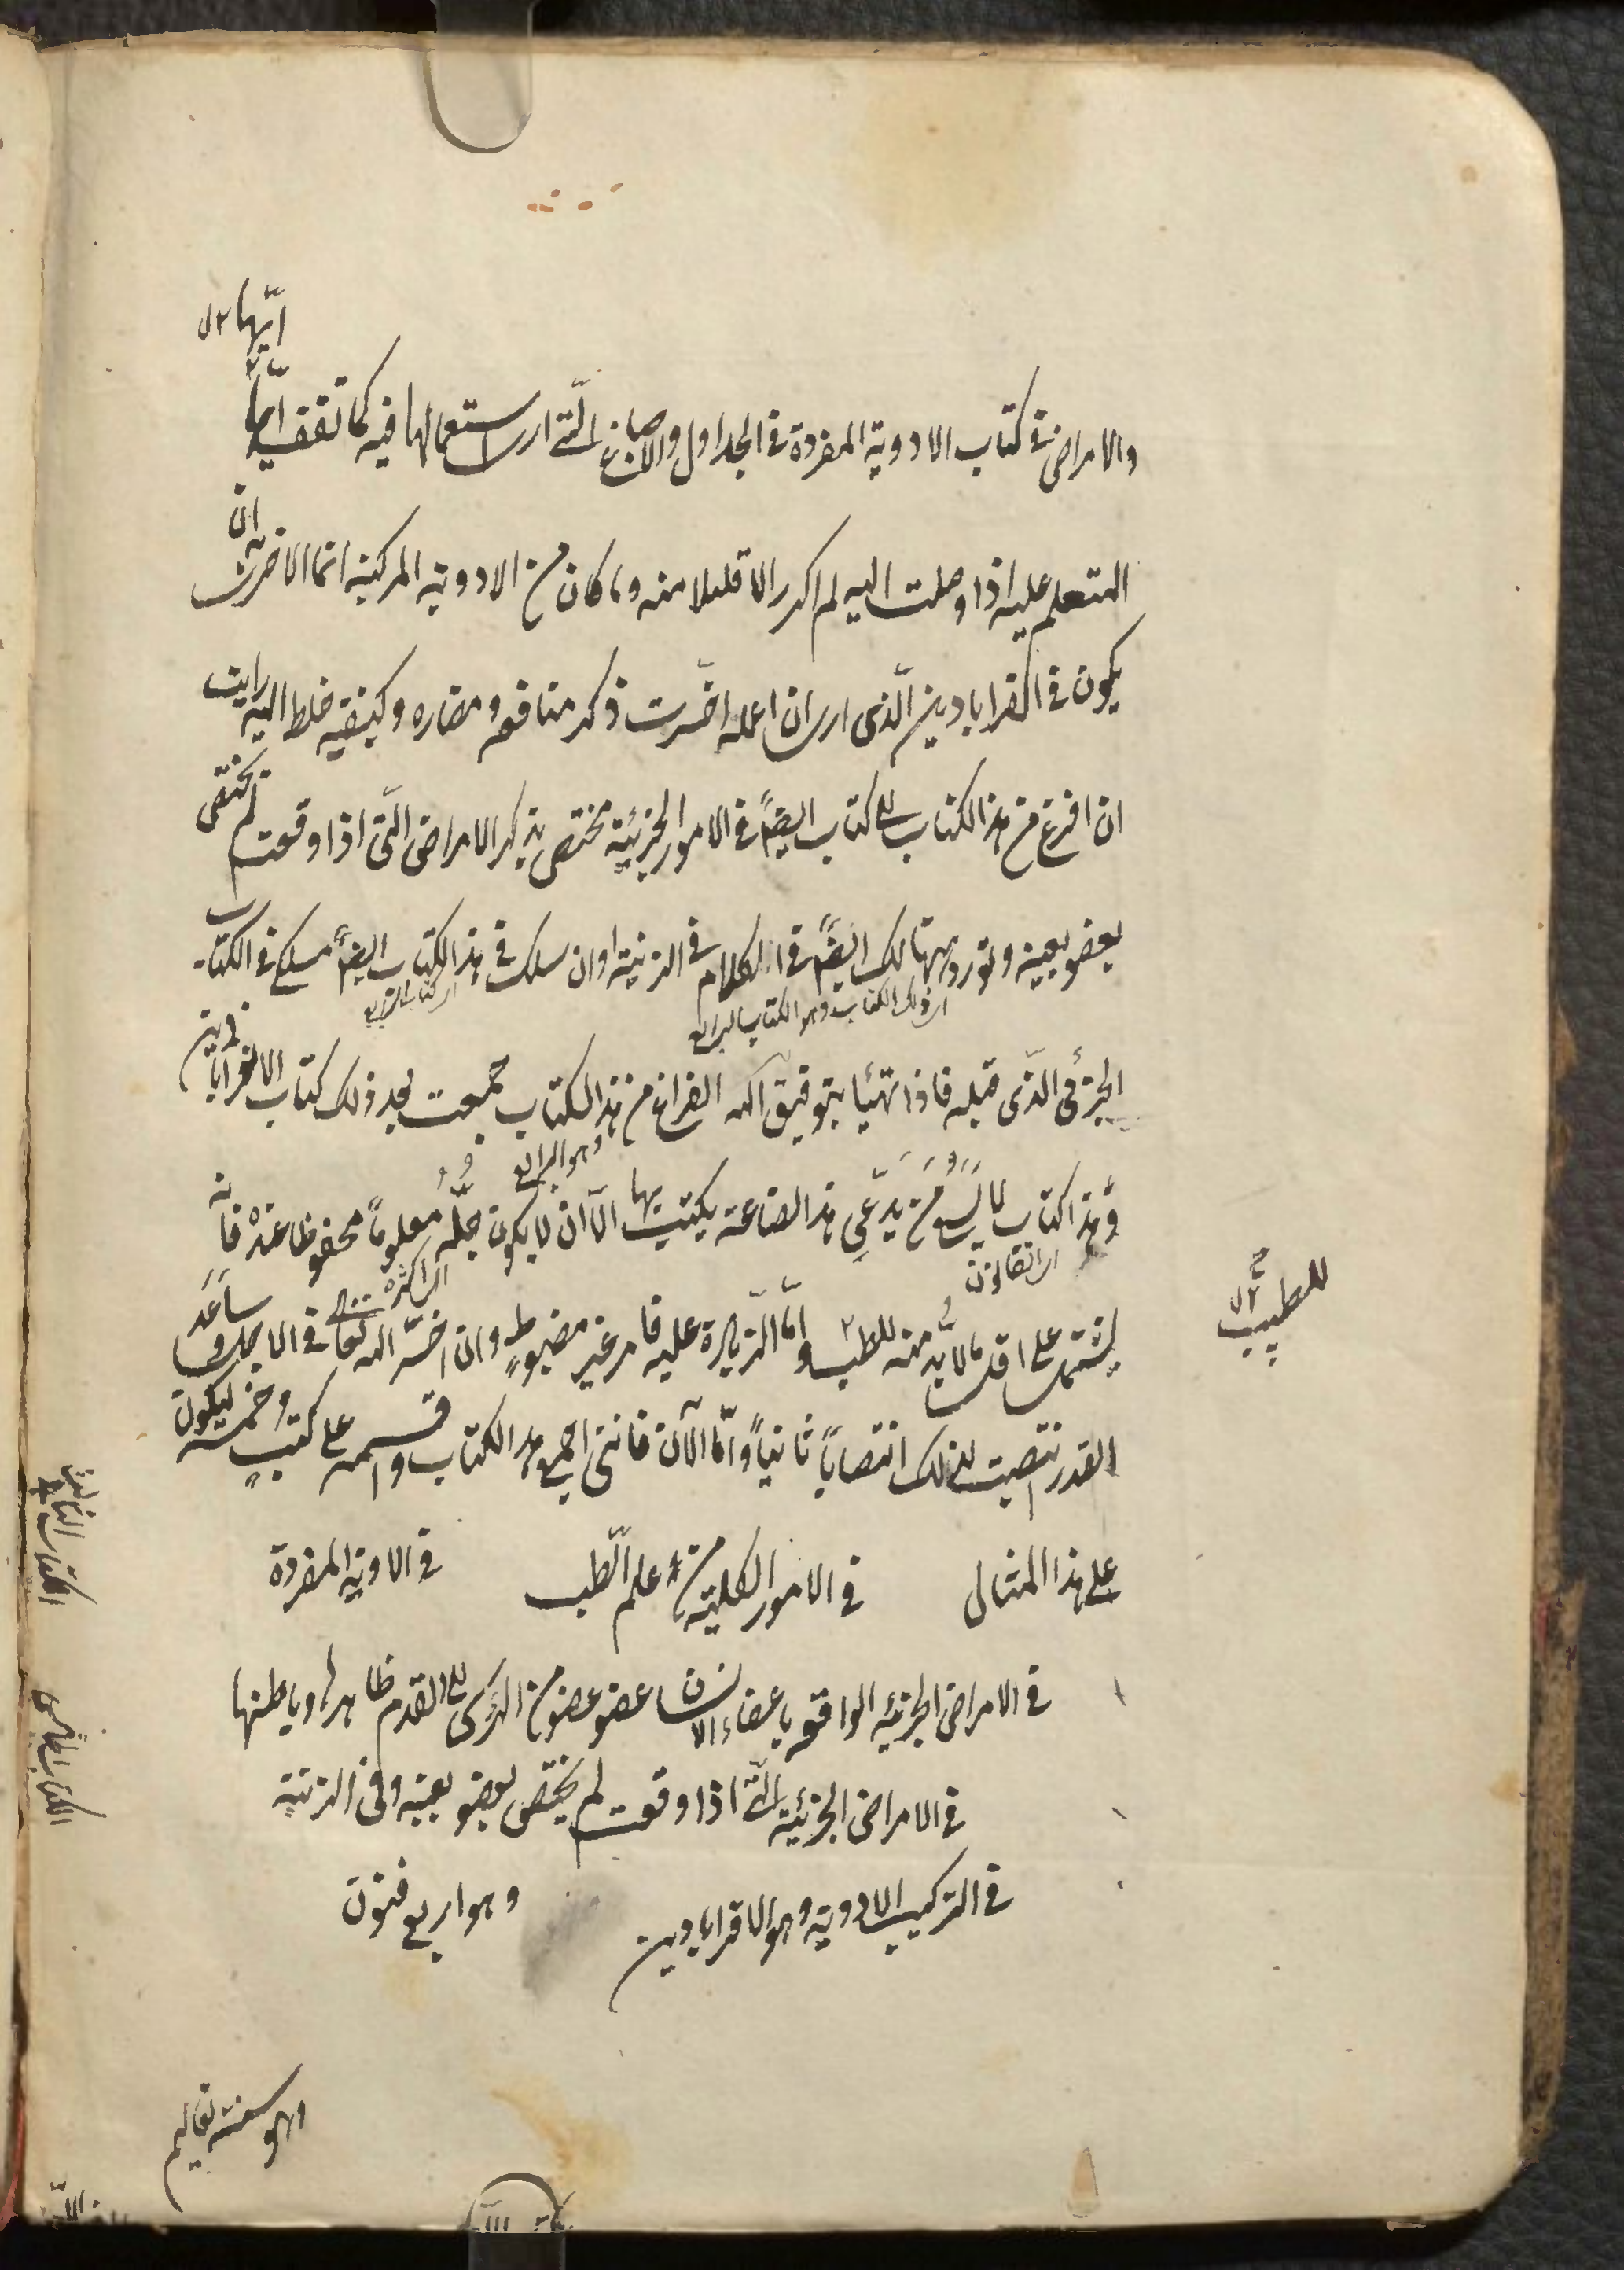 ايّها ٢ ل
والامراض فى كتاب الادوية المفردة فى الجداول والاصباغ الّتى ارى استعمالها فيه كما تقف ايّها
المتعلم عليه اذا وصلت اليه لم اكرر الا قليلا منه وما كان من الادوية المركبة انما الاحرى به ان
يكون فى القرابادين الّذى ارى ان اعمله اخّرت ذكر منافعه ومضاره وكيفية خلطه اليه ورايت
ان افرغ من هذا الكتاب الى كتاب ايضًا فى الامور الجزئية مختص بذكر الامراض الّتى اذا وقعت لم تختص
بعضو بعينه ونورد هنالك ايضًا فى الكلام فى الزينة وان سلك فى هذا الكتاب ايضًا مسلكى فى الكتاب
اى ذلك الكتاب وهو الكتاب الرابع
الجزئى الذّى قبله فاذا تهيّا بتوفيق الله الفراغ من هذا الكتاب جمعت بعد ذلك كتاب الاقرابادين
وهو الرابع
وهذا كتاب لا يسع من يدّعى هذا الصناعة يكتسب بها الّا ان لا يكون جلّه معلومًا محفوظا عنده فانّه
اى القانون
اى اكثره
يشتمل على اقل ما لا بدّ منه للطبيب وامّا الزيادة عليه فامر غير مضبوطٍ وان اخّر الله تعالى فى الاجل وساعد
للطبيب
القدر انتصبت لذلك انتصابًا ثانيًا وامّا الآن فاننى اجمع هذا الكتاب واقسمه على كتبٍ خمسة ليكون
على هذا المثال فى الامور الكلية من علم الطّب فى الادوية المفردة
فى الامراض الجزئيه الواقعه باعضاء الانسان عضو عضو من الراس الى القدم ظاهرها وباطنها
فى الامراض الجزئية الّتى اذا وقعت لم يختص بعضو بعينه وفى الزينة
فى التركيب الادوية وهو الاقرابادين وهو اربع فنون
الكتاب الثالث
الكتاب الخامس
وهو ستة تعاليم